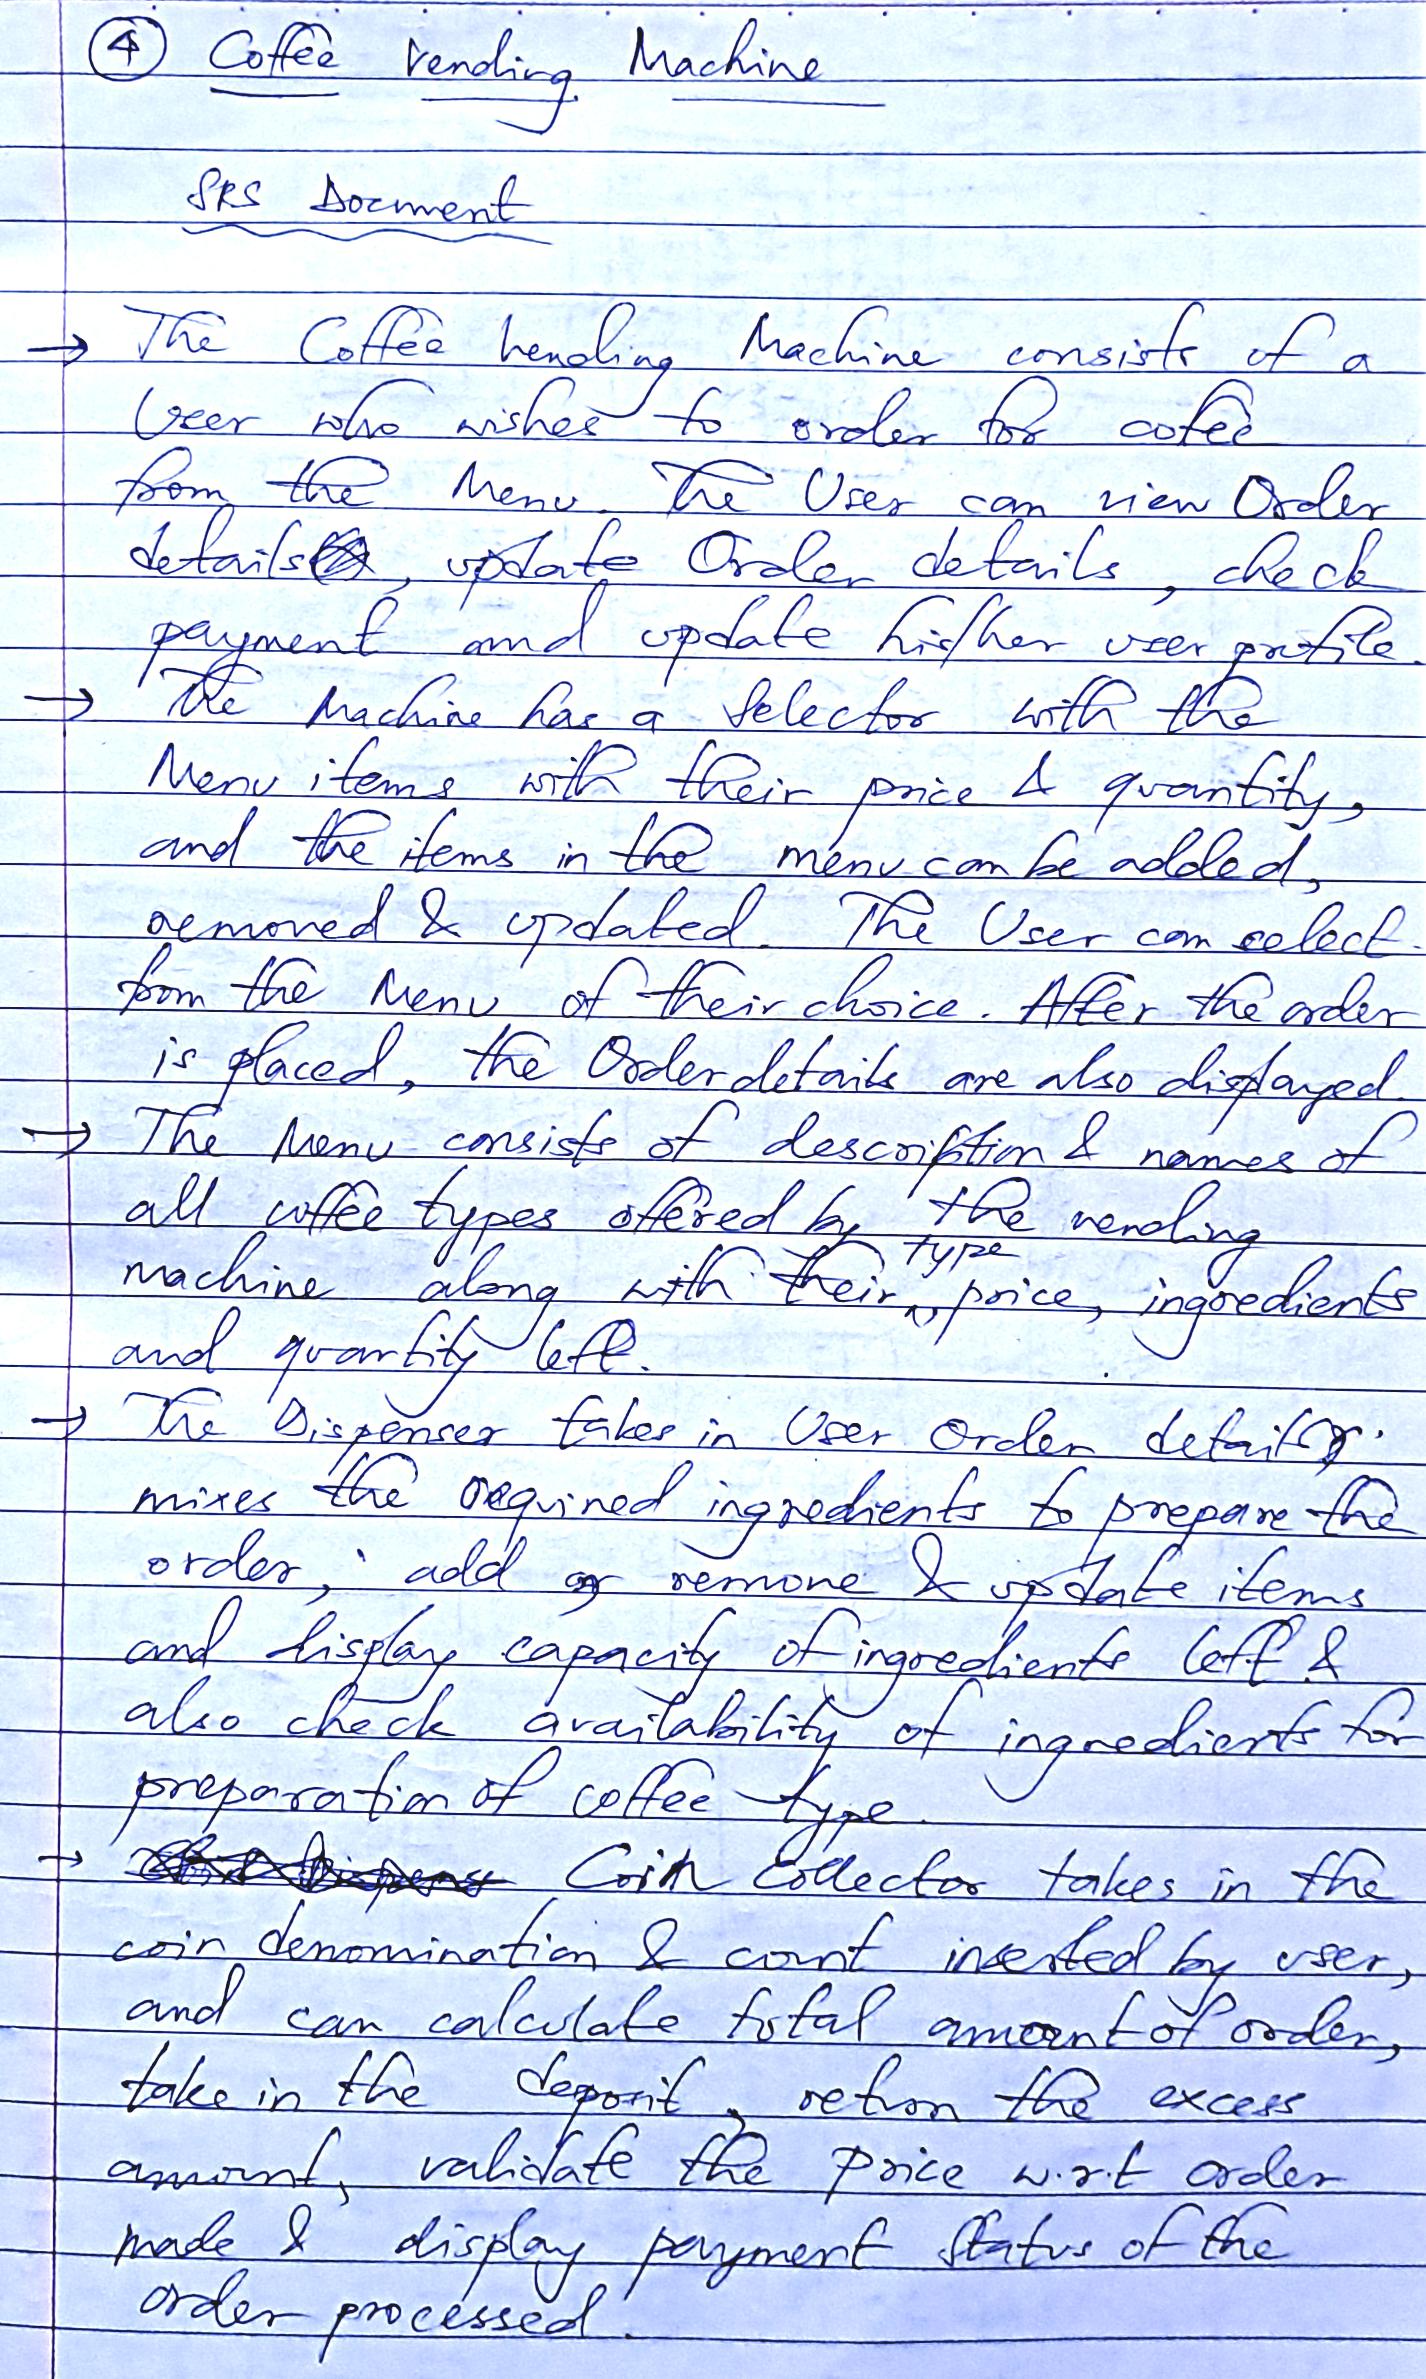 ④ Coffee Vending Machine
SRS Document
→ The Coffee Vending Machine consists of a
User who wishes to order for cofee
from the Menu. The User can view Order
details, update Order details, check
payment and update his/her user profile.
→ The Machine has a Selector with the
Menu items with their price & quantity,
and the items in the menu can be added,
removed & updated. The User can select
from the Menu of their choice. After the order
is placed, the Order details are also displayed.
→ The Menu consists of description & names of
all coffee types offered by the vending
machine along with their type price, ingredients
and quantity left.
→ The Dispenser takes in User Order details,
mixes the required ingredients to prepare the
order, add or remove & update items
and display capacity of ingredients left &
also check availability of ingredients for
preparation of coffee type.
→ Coin Collector takes in the
coin denomination & count inserted by user,
and can calculate total amount of order,
take in the deposit, return the excess
amount, validate the price w.r.t order
made & display payment status of the
order processed.